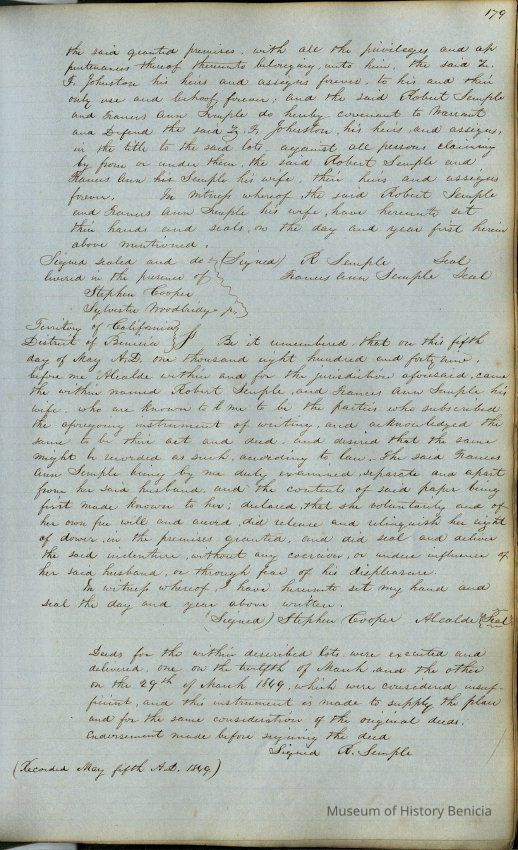 179
the said granted premises, with all the privileges and ap
purtenances thereof thereunto belonging, unto him, the said Z.
F. Johnston his heirs and assigns forever, to his and their
only use and behoof forever; and the said Robert Semple
and Francis Ann Semple do hereby covenant to Warrant
and Defend the said Z. F. Johnston, his heirs, and assigns,
in the title to the said lots, against all persons claiming
by from or under them, the said Robert Semple and
Frances Ann his Semple his wife, their heirs and assigns
forever. In witness whereof, the said Robert Semple
and Francis Ann Semple his wife, have hereunto set
their hands and seals, on the day and year first herein
above mentioned.
Signed sealed and de (Signed) R Semple Seal
livered in the presence of Frances Ann Semple Seal
Stephen Cooper
Sylvester Woodbridge
Territory of California
District of Benicia Be it remembered, that on this fifth
day of May A.D. one thousand eight hundred and forty nine,
before me Alcalde within and for the jurisdiction aforesaid, came
the within named Robert Semple, and Frances Ann Semple his
wife, who are known to t me to be the parties who subscribed
the aforegoing instrument of writing, and acknowledged the
same to be their act and deed, and desired that the same
might be recorded as such, according to law. The said Frances
Ann Semple being by me duly examined, separate and apart
from her said husband, and the contents of said paper being
first made known to her; declared, that she voluntarily and of
her own free will and accord, did release and relinquish her right
of dower, in the premises granted, and did seal and deliver
the said indenture, without any coercion, or undue influence of
her said husband, or through fear of his displeasure.
In witness whereof, I have hereunto set my hand and
seal the day and year above written.
(Signed) Stephen Cooper Alcalde Seal
Deeds for the within described lots were executed and
delivered, one on the twelfth of March and the other
on the 29th of March 1849, which were considered insuf-
ficient, and this instrument is made to supply the place
and for the same consideration of the original deeds.
Endorsement made before signing the deed
Signed R. Semple
(Recorded May fifth A.D. 1849)
Museum of History Benicia